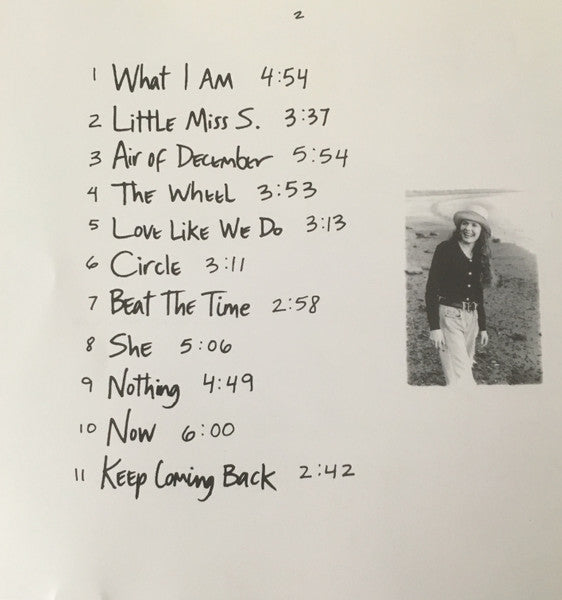 2
1 What I Am 4:54
2 Little Miss S. 3:37
3 Air of December 5:54
4 The Wheel 3:53
5 Love Like We Do 3:13
6 Circle 3:11
7 Beat The Time 2:58
8 She 5:06
9 Nothing 4:49
10 Now 6:00
11 Keep Coming Back 2:42